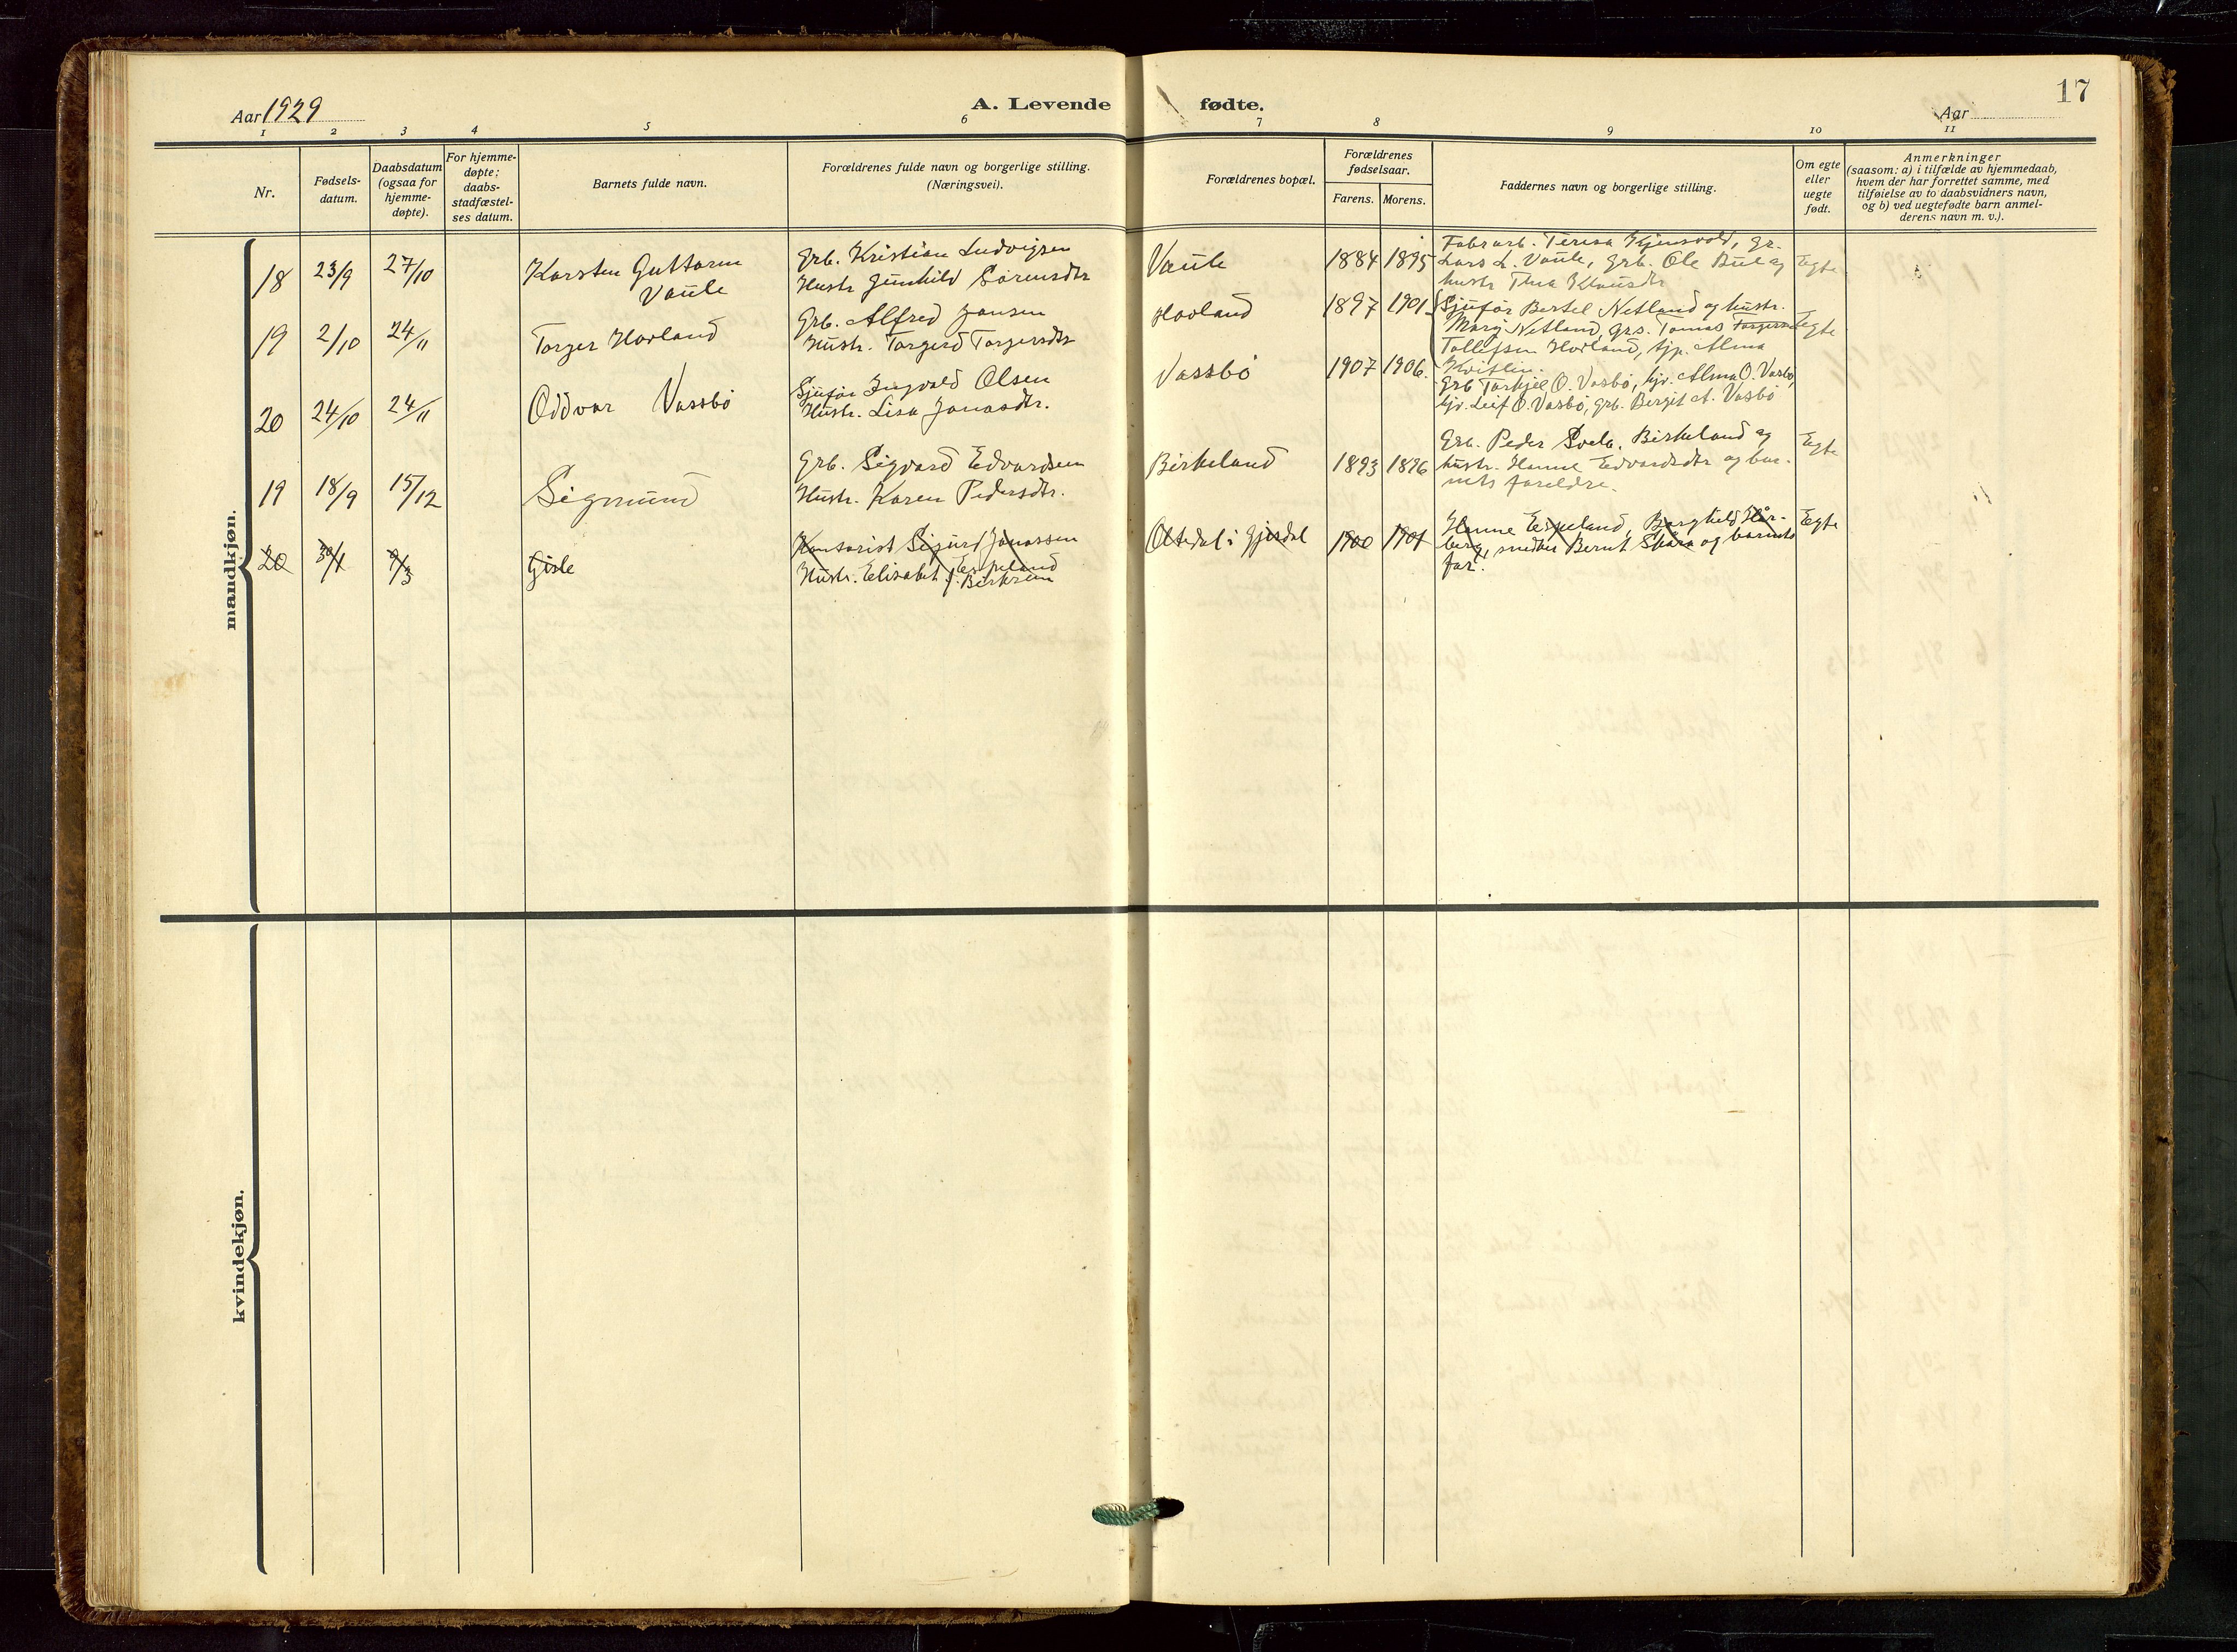 Aar 1929
A. Levende fødte.
17
Aar
1 2 3 4 5 6 7 8 9 10 11
Nr.
Fødsels-
datum.
Daabsdatum
(ogsaa for
hjemme-
døpte).
For hjemme-
døpte;
daabs-
stadfæstel-
ses datum.
Barnets fulde navn.
Forældrenes fulde navn og borgerlige stilling.
(Næringsvei).
Forældrenes bopæl.
Forældrenes
fødselsaar.
Farens. Morens.
Faddernes navn og borgerlige stilling.
Om egte
eller
uegte
født.
Anmerkninger
(saasom: a) i tilfælde av hjemmedaab,
hvem der har forrettet samme, med
tilføielse av to daabsvidners navn,
og b) ved uegtefødte barn anmel-
derens navn m. v.).
mandkjøn.
18 23/9 27/10
Karsten Guttorm
Vaule
Grb. Kristian Ludvigsen
Hustr Gunhild Sørensdtr
Vaule
1884 1895
Fabrarb. Teresa Kjensvold, gr.
Lars L. Vaule, grb. Ole Bue og
hustr Thea Klausdtr
Egte
19 2/10 24/11
Torger Hovland
Grb. Alfred Jansen
Hustr. Torgerd Torgersdtr
Hovland
1897 1901
Sjufør Bertel Netland og hustr.
Mary Netland, grs. Tomas Torgersen
Tollefsen Hovland, tjp. Alma
Kvitlin.
Egte
20 24/10 24/11
Oddvar Vassbö
Sjufør Ingvald Olsen
Hustr. Lisa Jonasdtr.
Vassbö
1907 1906.
Grb Torkjel O. Vasbö, hjv. Alma O. Vasbö,
hjv. Leif O. Vasbö, grb. Bergit A. Vasbö
19 18/9 15/12
Sigmund
Grb. Sigvard Edvardsen
Hustr. Karen Pedersdtr.
Birkeland
1893 1896
Grb. Peder Birkeland og
hustr. Hanne Edvardsdtr og bar-
nets foreldre.
Egte
20 30/1 9/3
Gisle
Kontorist Sigurd Jonassen
Espeland
Hustr. Elisabet f. Birkrem
Oltedal i Gjesdal
1900 1901
Hanne Espeland, Borghild Hår-
berg, smeden Bernt Skåra og barnets
far.
Egte
kvindekjøn.